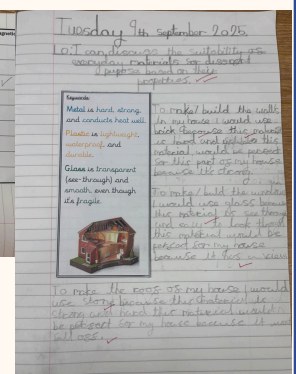 Tuesday 9th september 2025
Lo: I can discuss the suitability of
everyday materials for different
purpose based on their
properties.
Keywords:
Metal is hard, strong,
and conducts heat well.
Plastic is lightweight,
waterproof, and
durable.
Glass is transparent
(see-through) and
smooth, even though
it's fragile.
To make/build the walls
in my house I would use
brick because this material
is hard and
material would be perfect
for this part of my house
because it's strong.
To make/build the window
I would use glass because
this material is see through
and easy to look through
this material would be
perfect for my house
because it this is
To make the roof of my house I would
use because this material is
strong and hard this material would
be perfect for my house because it